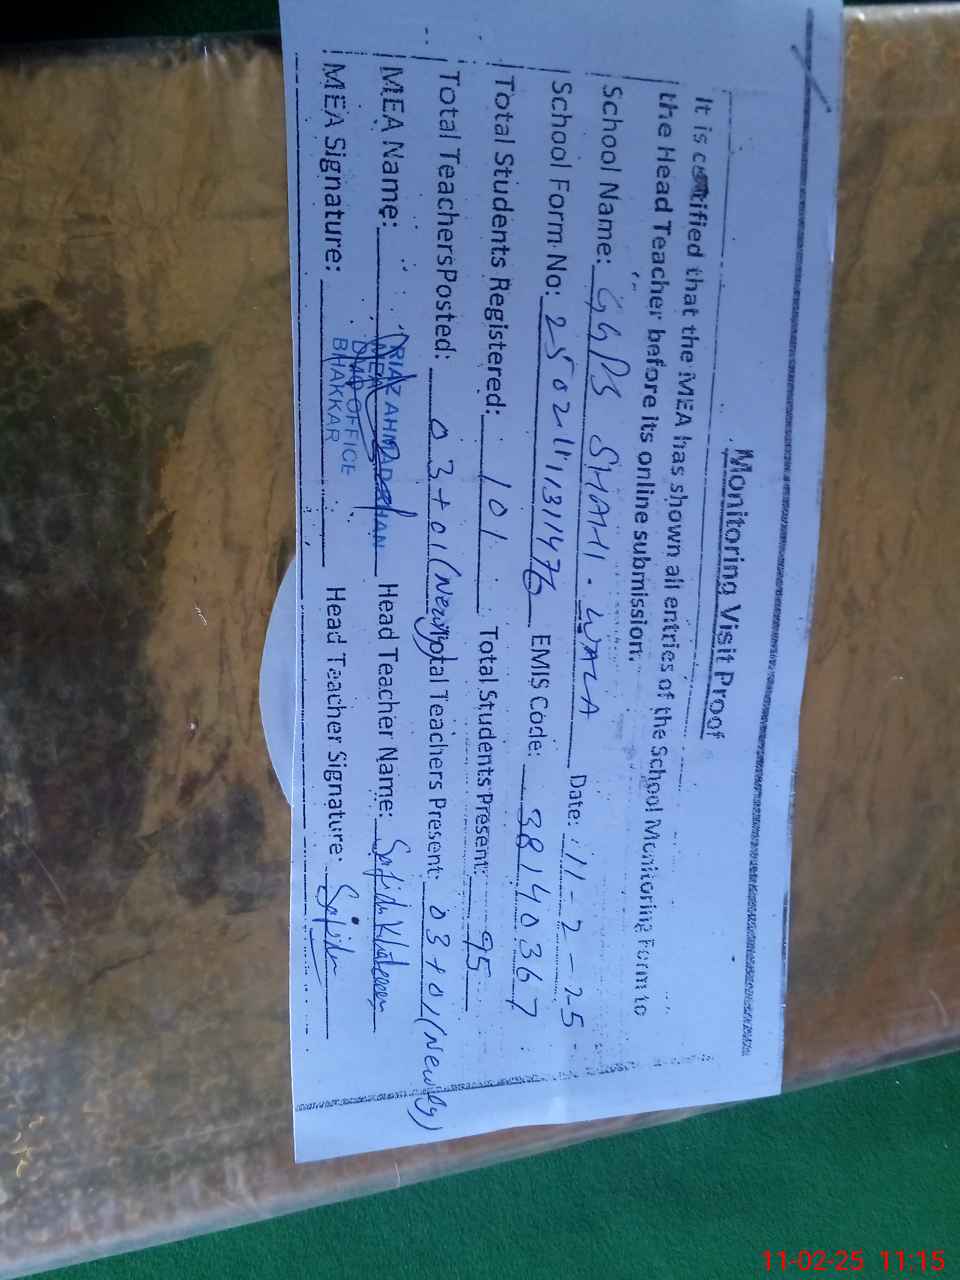 Monitoring Visit Proof
It is certified that the MEA has shown all entries of the School Monitoring Form to
the Head Teacher before its online submission.
School Name: GGPS SHAHI. WALA Date: 11-2-25
School Form No: EMIS Code: 38140367
Total Students Registered: 101 Total Students Present: 95
Total TeachersPosted: 03+01(Newly) Total Teachers Present: 03+01(Newly)
MEA Name: RIAZ AHMAD KHAN Head Teacher Name:
MEA
DMO OFFICE
BHAKKAR
MEA Signature: Head Teacher Signature:
11-02-25 11:15